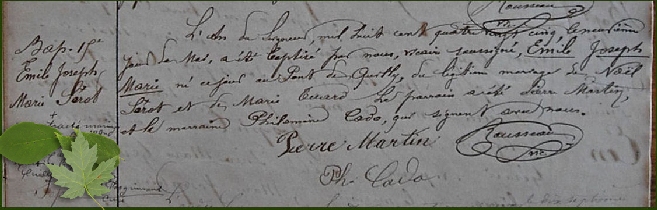 Rousseau
Bap. 15e
Emile Joseph
Marie Sérot
L'An du Seigneur, mil huit cent quatre vingt cinq, le neuvième
jour de Mai, a été baptisé par nous, vicaire soussigné, Emile Joseph
Marie né ce jour au Pont de Guelly, du légitime mariage de Noël
Sérot et de Marie Euard. Le parrain a été Pierre Martin,
et la marraine Philomène Cado, qui signent avec nous.
Pierre Martin
Rousseau
vic.
Ph. Cado